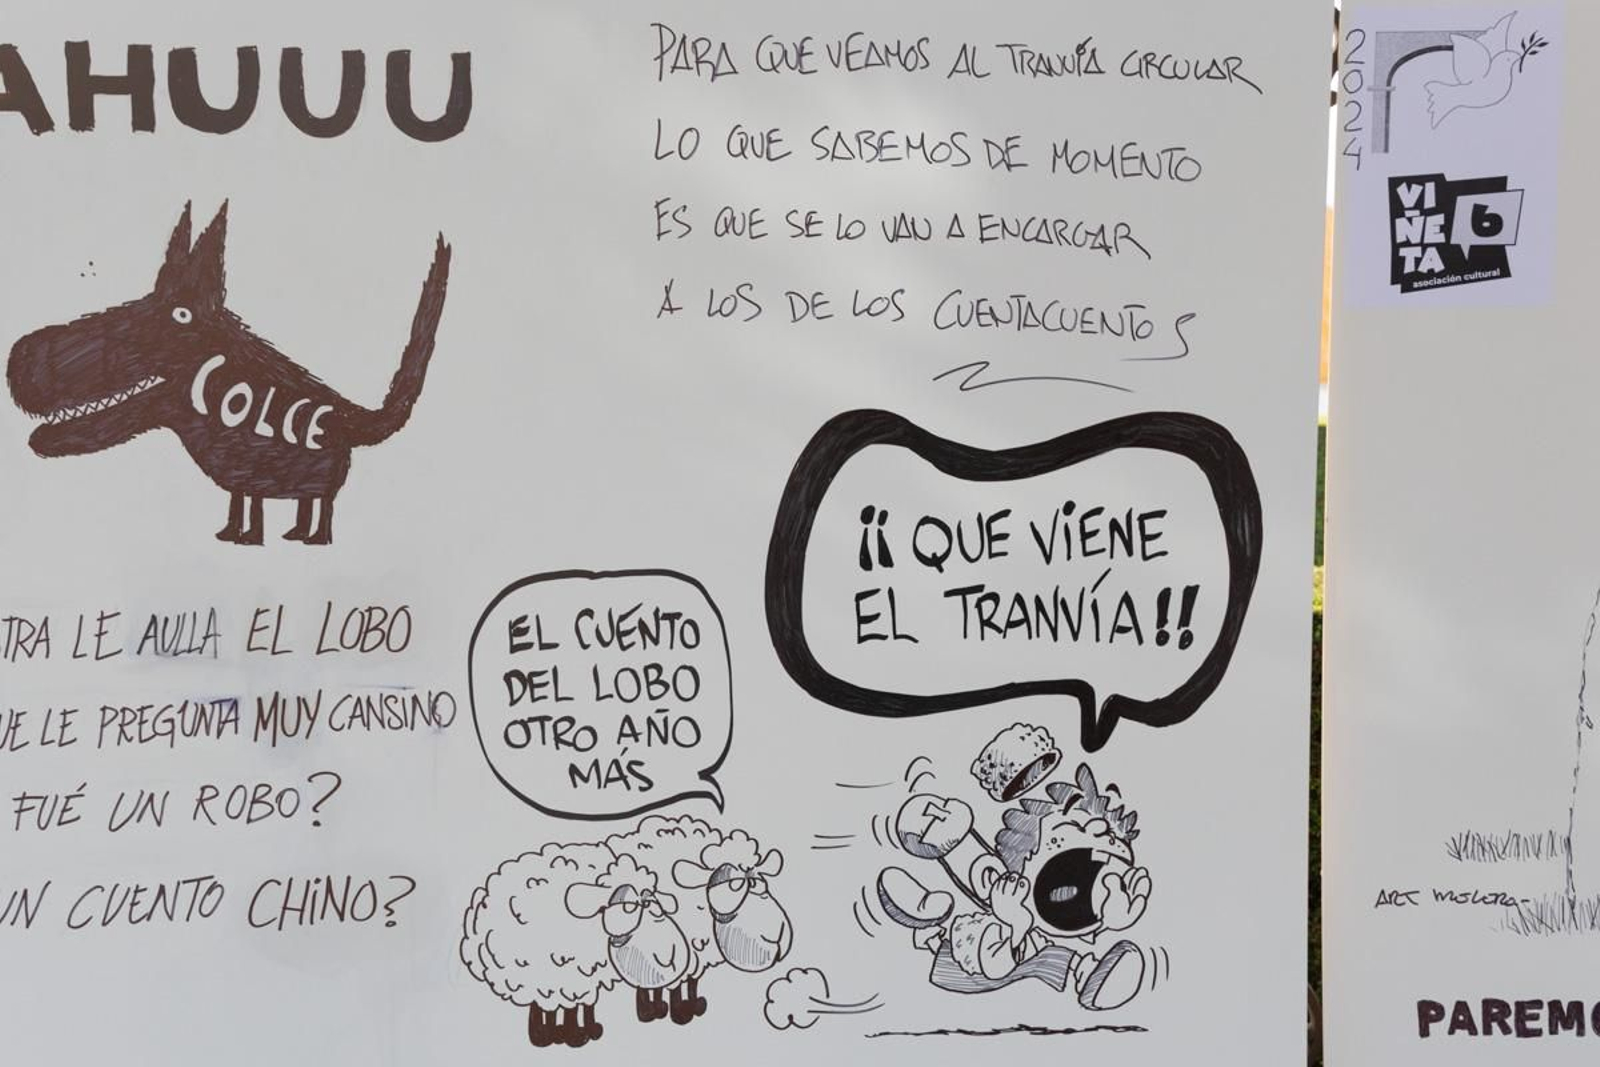 AHUUU
COLCE
TRA LE AULLA EL LOBO
UE LE PREGUNTA MUY CANSINO
FUÉ UN ROBO?
UN CUENTO CHINO?
PARA QUE VEAMOS AL TRANVÍA CIRCULAR
LO QUE SABEMOS DE MOMENTO
ES QUE SE LO VAN A ENCARGAR
A LOS DE LOS CUENTACUENTOS
¡¡QUE VIENE
EL TRANVÍA!!
EL CUENTO
DEL LOBO
OTRO AÑO
MÁS
T
2024
VIÑETA 6
asociación cultural
PAREMO